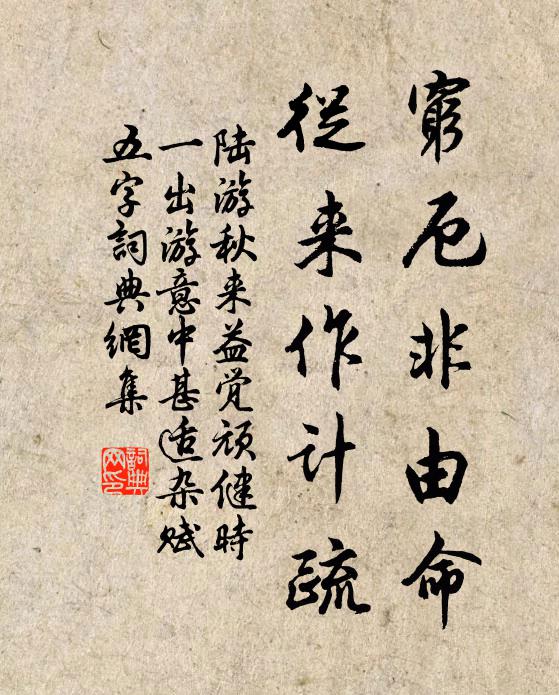 窮厄非由命
從来作计疏
陆游秋来益觉顽健時
一出游意中甚适杂赋
五字詞典網集
詞典
网印